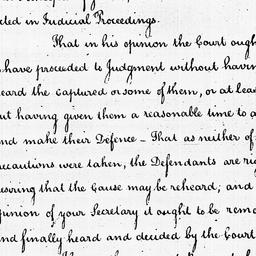 cted in Judicial Proceedings.
That in his opinion the Court ough
have proceeded to Judgment without havin
eard the captured or some of them, or at lea
ut having given them a reasonable time to a
nd make their Defence – That as neither of
ecautions were taken, the Defendants are rig
esiring that the Cause may be reheard; and
pinion of your Secretary it ought to be rema
nd finally heard and decided by the Court